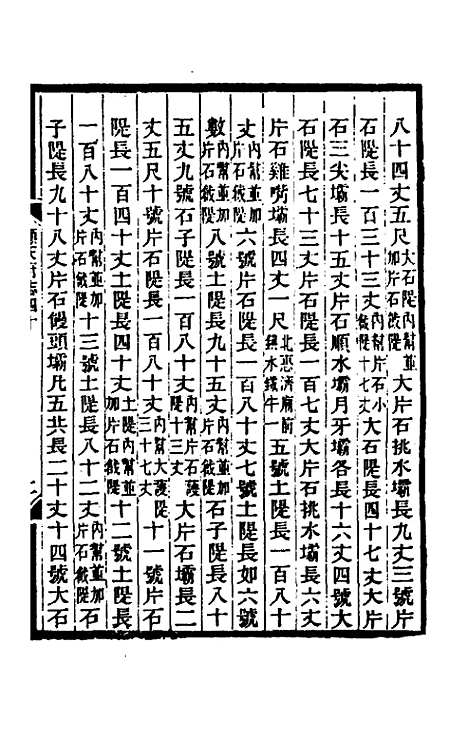 八十四丈五尺大石隄內幫並加片石戧隄大片石挑水壩長九丈三號片
石隄長一百三十三丈內幫片石小戧隄十七丈大石隄長四十七丈大片
石三尖壩長十五丈片石順水壩月牙壩各長十六丈四號大
石隄長七十三丈片石隄長一百七丈大片石挑水壩長六丈
片石雞嘴壩長四丈一尺北惠濟廟前鎮水鐵牛一五號石隄長一百八十
丈內幫並加片石戧隄六號片石隄長一百八十丈七號土隄長如六號
數內幫並加片石戧隄八號土隄長九十五丈片石戧隄石子隄長八十
五丈九號石子隄長一百八十丈內幫片石護隄十三丈大片石壩長二
丈五尺十號片石隄長一百八十丈內幫大護隄三十七丈十一號片石
隄長一百四十丈土隄長四十丈土隄內幫並加片石戧隄十二號土隄長
一百八十丈內幫並加片石戧隄十三號土隄長八十二丈內幫並加片石戧隄石
子隄長九十八丈片石饅頭壩凡五共長二十丈十四號大石
順天府志四十